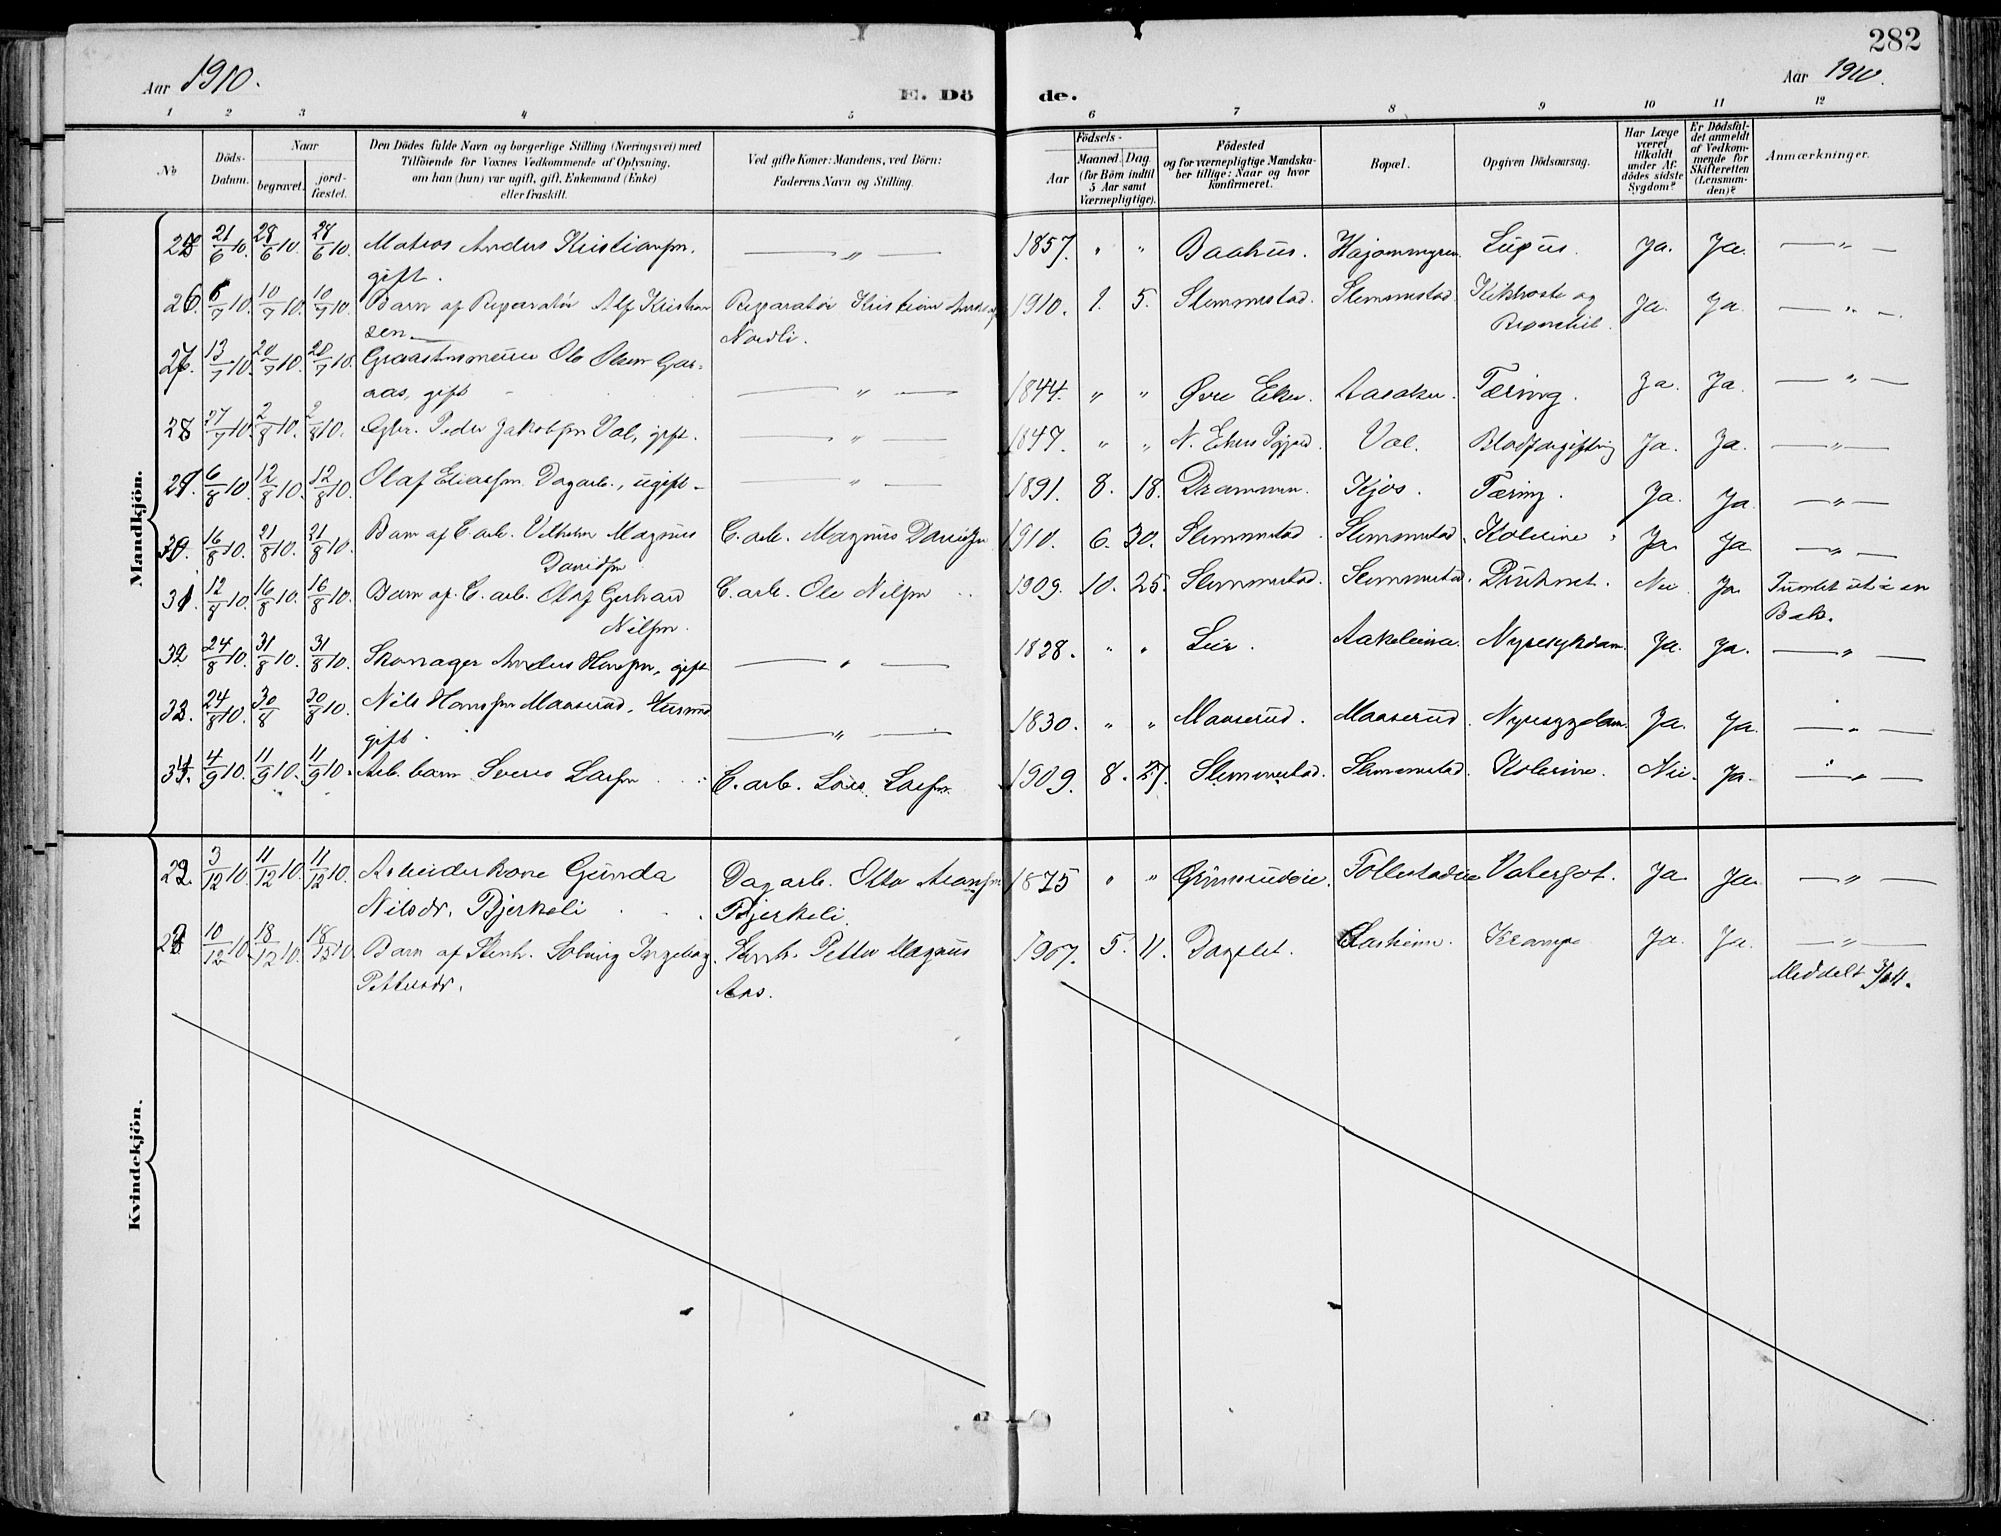 282
Aar 1910.
E. Dö de.
Aar 1910.
1 2 3 4 5 6 7 8 9 10 11 12
No
Döds-Datum.
Naar
begravet.
jord-fæstet.
Den Dödes fulde Navn og borgerlige Stilling (Næringsvei) med
Tilföiende for Voxnes Vedkommende af Oplysning,
om han (hun) var ugift, gift, Enkemand (Enke)
eller fraskilt.
Ved gifte Koner: Mandens, ved Börn:
Faderens Navn og Stilling.
Födsels-
Aar
Maaned. Dag.
(for Börn indtil
5 Aar samt
Værnepligtige).
Födested
og for værnepligtige Mandska-
ber tillige: Naar og hvor
konfirmeret.
Bopæl.
Opgiven Dödsaarsag.
Har Læge
været
tilkaldt
under Af-
dödes sidste
Sygdom?
Er Dödsfal-
det anmeldt
af Vedkom-
mende for
Skifteretten
(Lensman-
den)?
Anmærkninger.
Mandkjön.
25 21/6 10. 28/6 10. 28/6 10. Matros Anders Kristiansen. — " — 1857. " " Baahus. Lupus. Ja. Ja. — " —
gift.
26. 6/7 10. 10/7 10. 10/7 10. Barn af Reparatör Alf Kristian Reparatör Kristian 1910. 1. 5. Slemmestad. Slemmestad. Kikhoste og Ja. Ja. — " —
sen Nordli. Bronchit.
27. 13/7 10. 20/7 10. 20/7 10. Ole Olsen Gar-
aas, gift — " — 1844. " " Övre Eker. Aasaker. Tæring. Ja. Ja. — " —
28 27/7 10. 2/8 10. 2/8 10. Gbr. Peder Jakobsen Val, gift. — " — 1847. " " N. Eker Val. Blodforgiftning Ja. Ja. — " —
29. 6/8 10. 12/8 10. 12/8 10. Olaf Eliassen Dagarb., ugift — " — 1891. 8. 18. Drammen. Kjos. Tæring. Ja. Ja. — " —
30. 16/8 10. 21/8 10. 21/8 10. Barn af C. arb. Vilhelm Magnus C. arb. Magnus Davidsen 1910. 6. 30. Slemmestad. Slemmestad. Kolerine. Ja. Ja — " —
Davidsen
31. 12/8 10. 16/8 10. 16/8 10. Barn af C. arb. Olaf Gerhard C. arb. Ole Nilsen 1909. 10. 25. Slemmestad. Slemmestad. Druknet. Nei Ja. Tumlet ut i en
Nilsen. Bæk.
32 24/8 10. 31/8 10. 31/8 10. Skomager Anders Hansen, gift — " — 1828. " " Lier. Nyresykdom. Ja. Ja. — " —
33. 24/8 10. 30/8 30/8 10. Nils Hansen Maaserud, Husmd — " — 1830. " " Maaserud. Maaserud. Ja. Ja. — " —
gift.
34. 4/9 10. 11/9 10. 11/9 10. Arb. barn Sverre Larsen C. arb. Larsen. 1909. 8. 27. Slemmestad. Slemmestad. Kolerine. Nei. Ja. — " —
Kvindekjön.
22. 3/12 10. 11/12 10. 11/12 10. Arbeiderkone Gunda Dagarb. Otto 1875 " " Valersot. Ja Ja. — " —
Nilsdr. Bjerkeli Bjerkeli.
23 10/12 10. 18/12 10. 18/12 10. Barn af Stenh. Solveig Ingeborg Stenh. Petter Magnus 1907. 5. 11. Dagslet. Krampe Ja. Ja. — " —
Pettersdr. Aas. Meddelt 3/1 11.